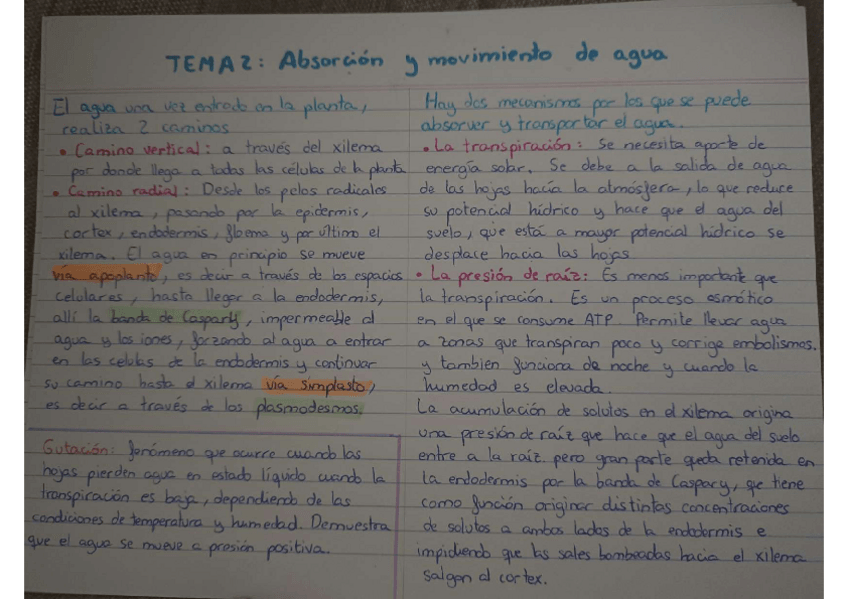 TEMA 2: Absorción y movimiento de agua
El agua una vez entrado en la planta,
realiza 2 caminos
• Camino vertical: a través del xilema
por donde llega a todas las células de la planta
• Camino radial: Desde los pelos radicales
al xilema, pasando por la epidermis,
cortex, endodermis, floema y por último el
xilema. El agua en principio se mueve
vía apoplanto, es decir a través de los espacios
celulares, hasta llegar a la endodermis,
allí la banda de Caspary, impermeable al
agua y los iones, forzando al agua a entrar
en las celulas de la endodermis y continuar
su camino hasta el xilema vía simplasto,
es decir a través de los plasmodesmos.
Gutación: fenómeno que ocurre cuando las
hojas pierden agua en estado líquido cuando la
transpiración es baja, dependiendo de las
condiciones de temperatura y humedad. Demuestra
que el agua se mueve a presión positiva.
Hay dos mecanismos por los que se puede
absorver y transportar el agua.
• La transpiración: Se necesita aporte de
energía solar. Se debe a la salida de agua
de las hojas hacía la atmósfera, lo que reduce
su potencial hídrico y hace que el agua del
suelo, que está a mayor potencial hídrico se
desplace hacia las hojas
• La presión de raíz: Es menos importante que
la transpiración. Es un proceso osmótico
en el que se consume ATP. Permite llevar agua
a zonas que transpiran poco y corrige embolismos.
y tambien funciona de noche y cuando la
humedad es elevada.
La acumulación de solutos en el xilema origina
una presión de raíz que hace que el agua del suelo
entre a la raíz. pero gran parte queda retenida en
la endodermis por la banda de Caspary, que tiene
como función originar distintas concentraciones
de solutos a ambos lados de la endodermis e
impidiendo que las sales bombeadas hacia el xilema
salgan al cortex.